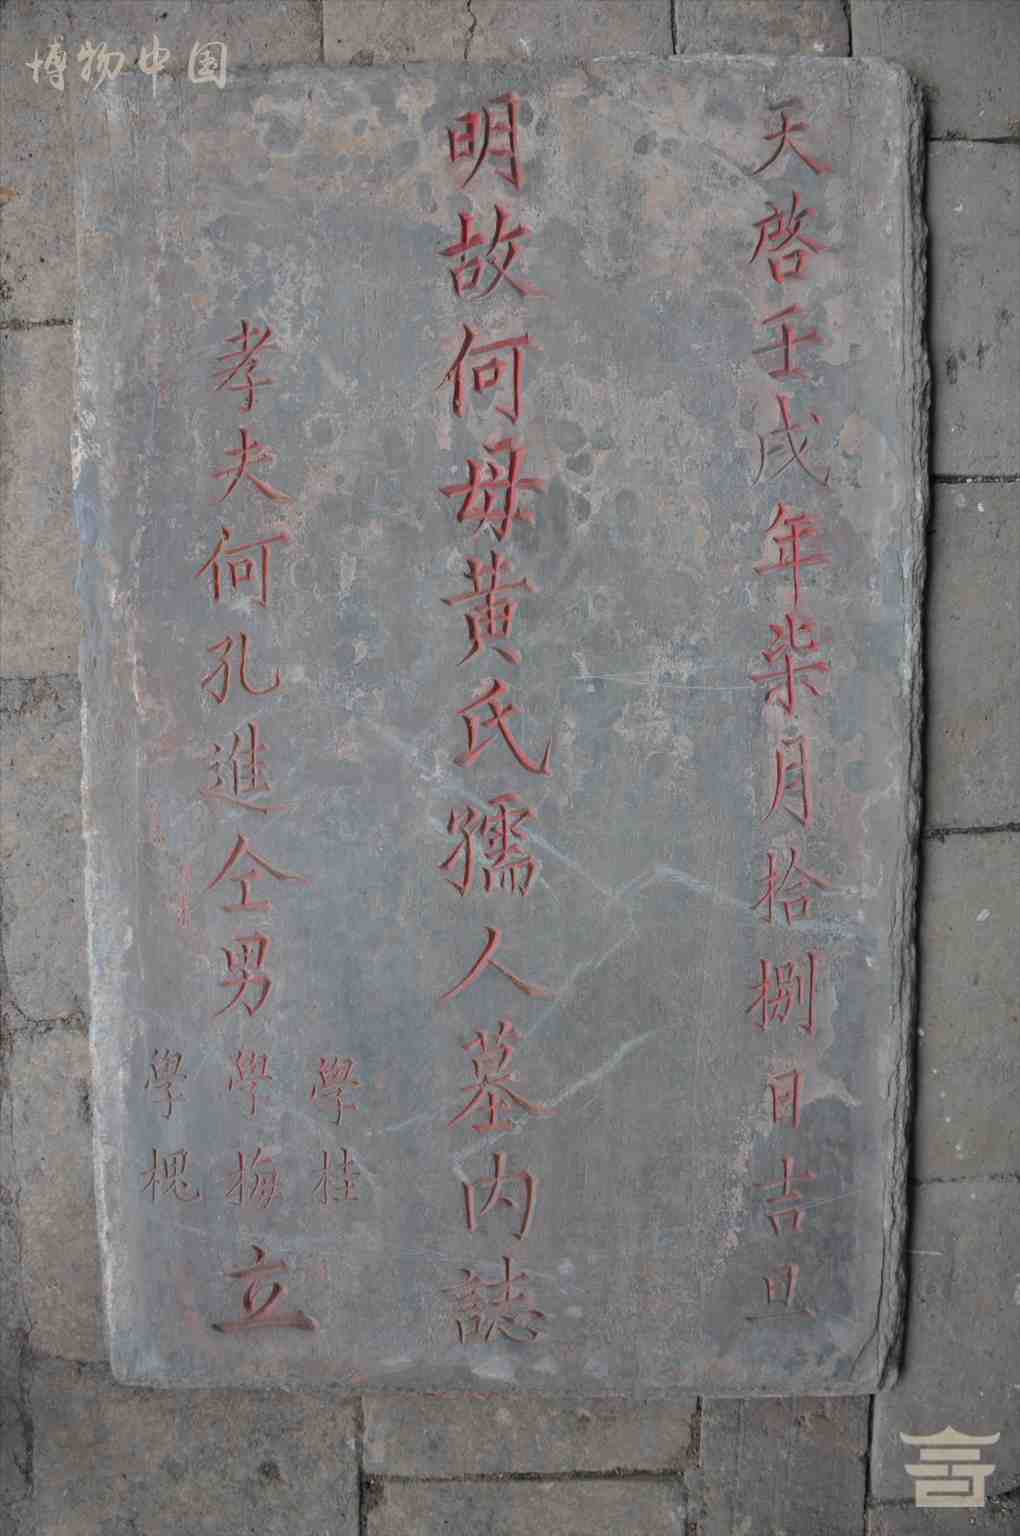 博物中国
天啓壬戌年柒月拾捌日吉旦
明故何母黄氏孺人墓内誌
孝夫何孔進仝男
學桂
學梅
學槐
立